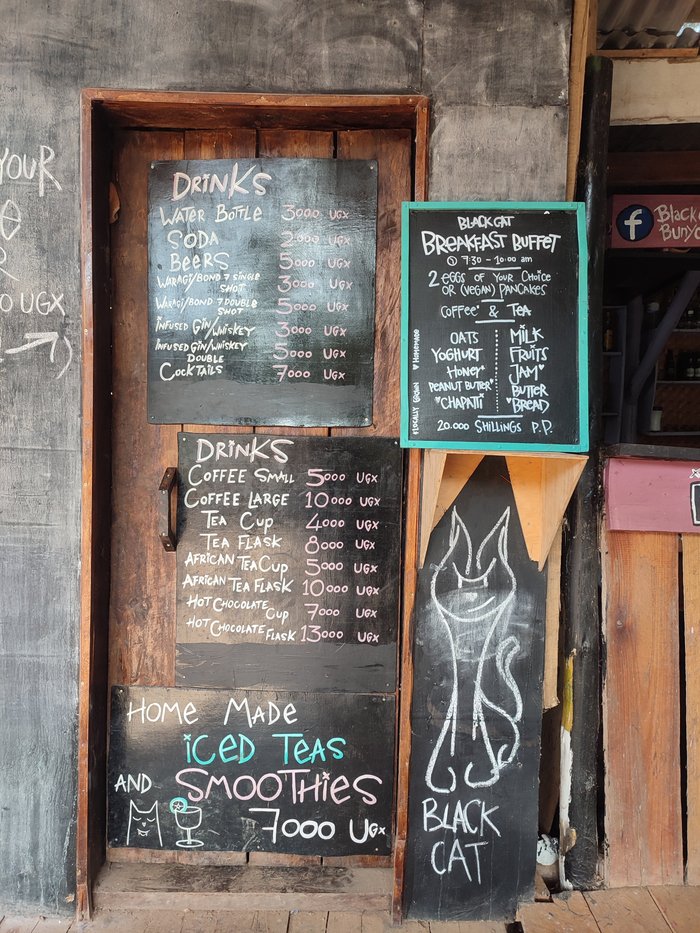 YOUR
0 UGX
DRINKS
WATER BOTTLE 3000 UGX
SODA 2000 UGX
BEERS 5000 UGX
WARAGI/BOND 7 SINGLE SHOT 3000 UGX
WARAGI/BOND 7 DOUBLE SHOT 5000 UGX
INFUSED GIN/WHISKEY 3000 UGX
INFUSED GIN/WHISKEY DOUBLE 5000 UGX
COCKTAILS 7000 UGX
DRINKS
COFFEE SMALL 5000 UGX
COFFEE LARGE 10000 UGX
TEA CUP 4000 UGX
TEA FLASK 8000 UGX
AFRICAN TEA CUP 5000 UGX
AFRICAN TEA FLASK 10000 UGX
HOT CHOCOLATE CUP 7000 UGX
HOT CHOCOLATE FLASK 13000 UGX
HOME MADE
ICED TEAS
AND SMOOTHIES
7000 UGX
BLACK CAT
BREAKFAST BUFFET
7:30 - 10:00 am
2 EGGS OF YOUR CHOICE
OR (VEGAN) PANCAKES
COFFEE* & TEA
OATS MILK
YOGHURT FRUITS
HONEY* JAM♥
PEANUT BUTTER* BUTTER
*CHAPATTI ♥BREAD
20.000 SHILLINGS P.P.
♥HOMEMADE
*LOCALLY GROWN
BLACK
CAT
f Black
Buny